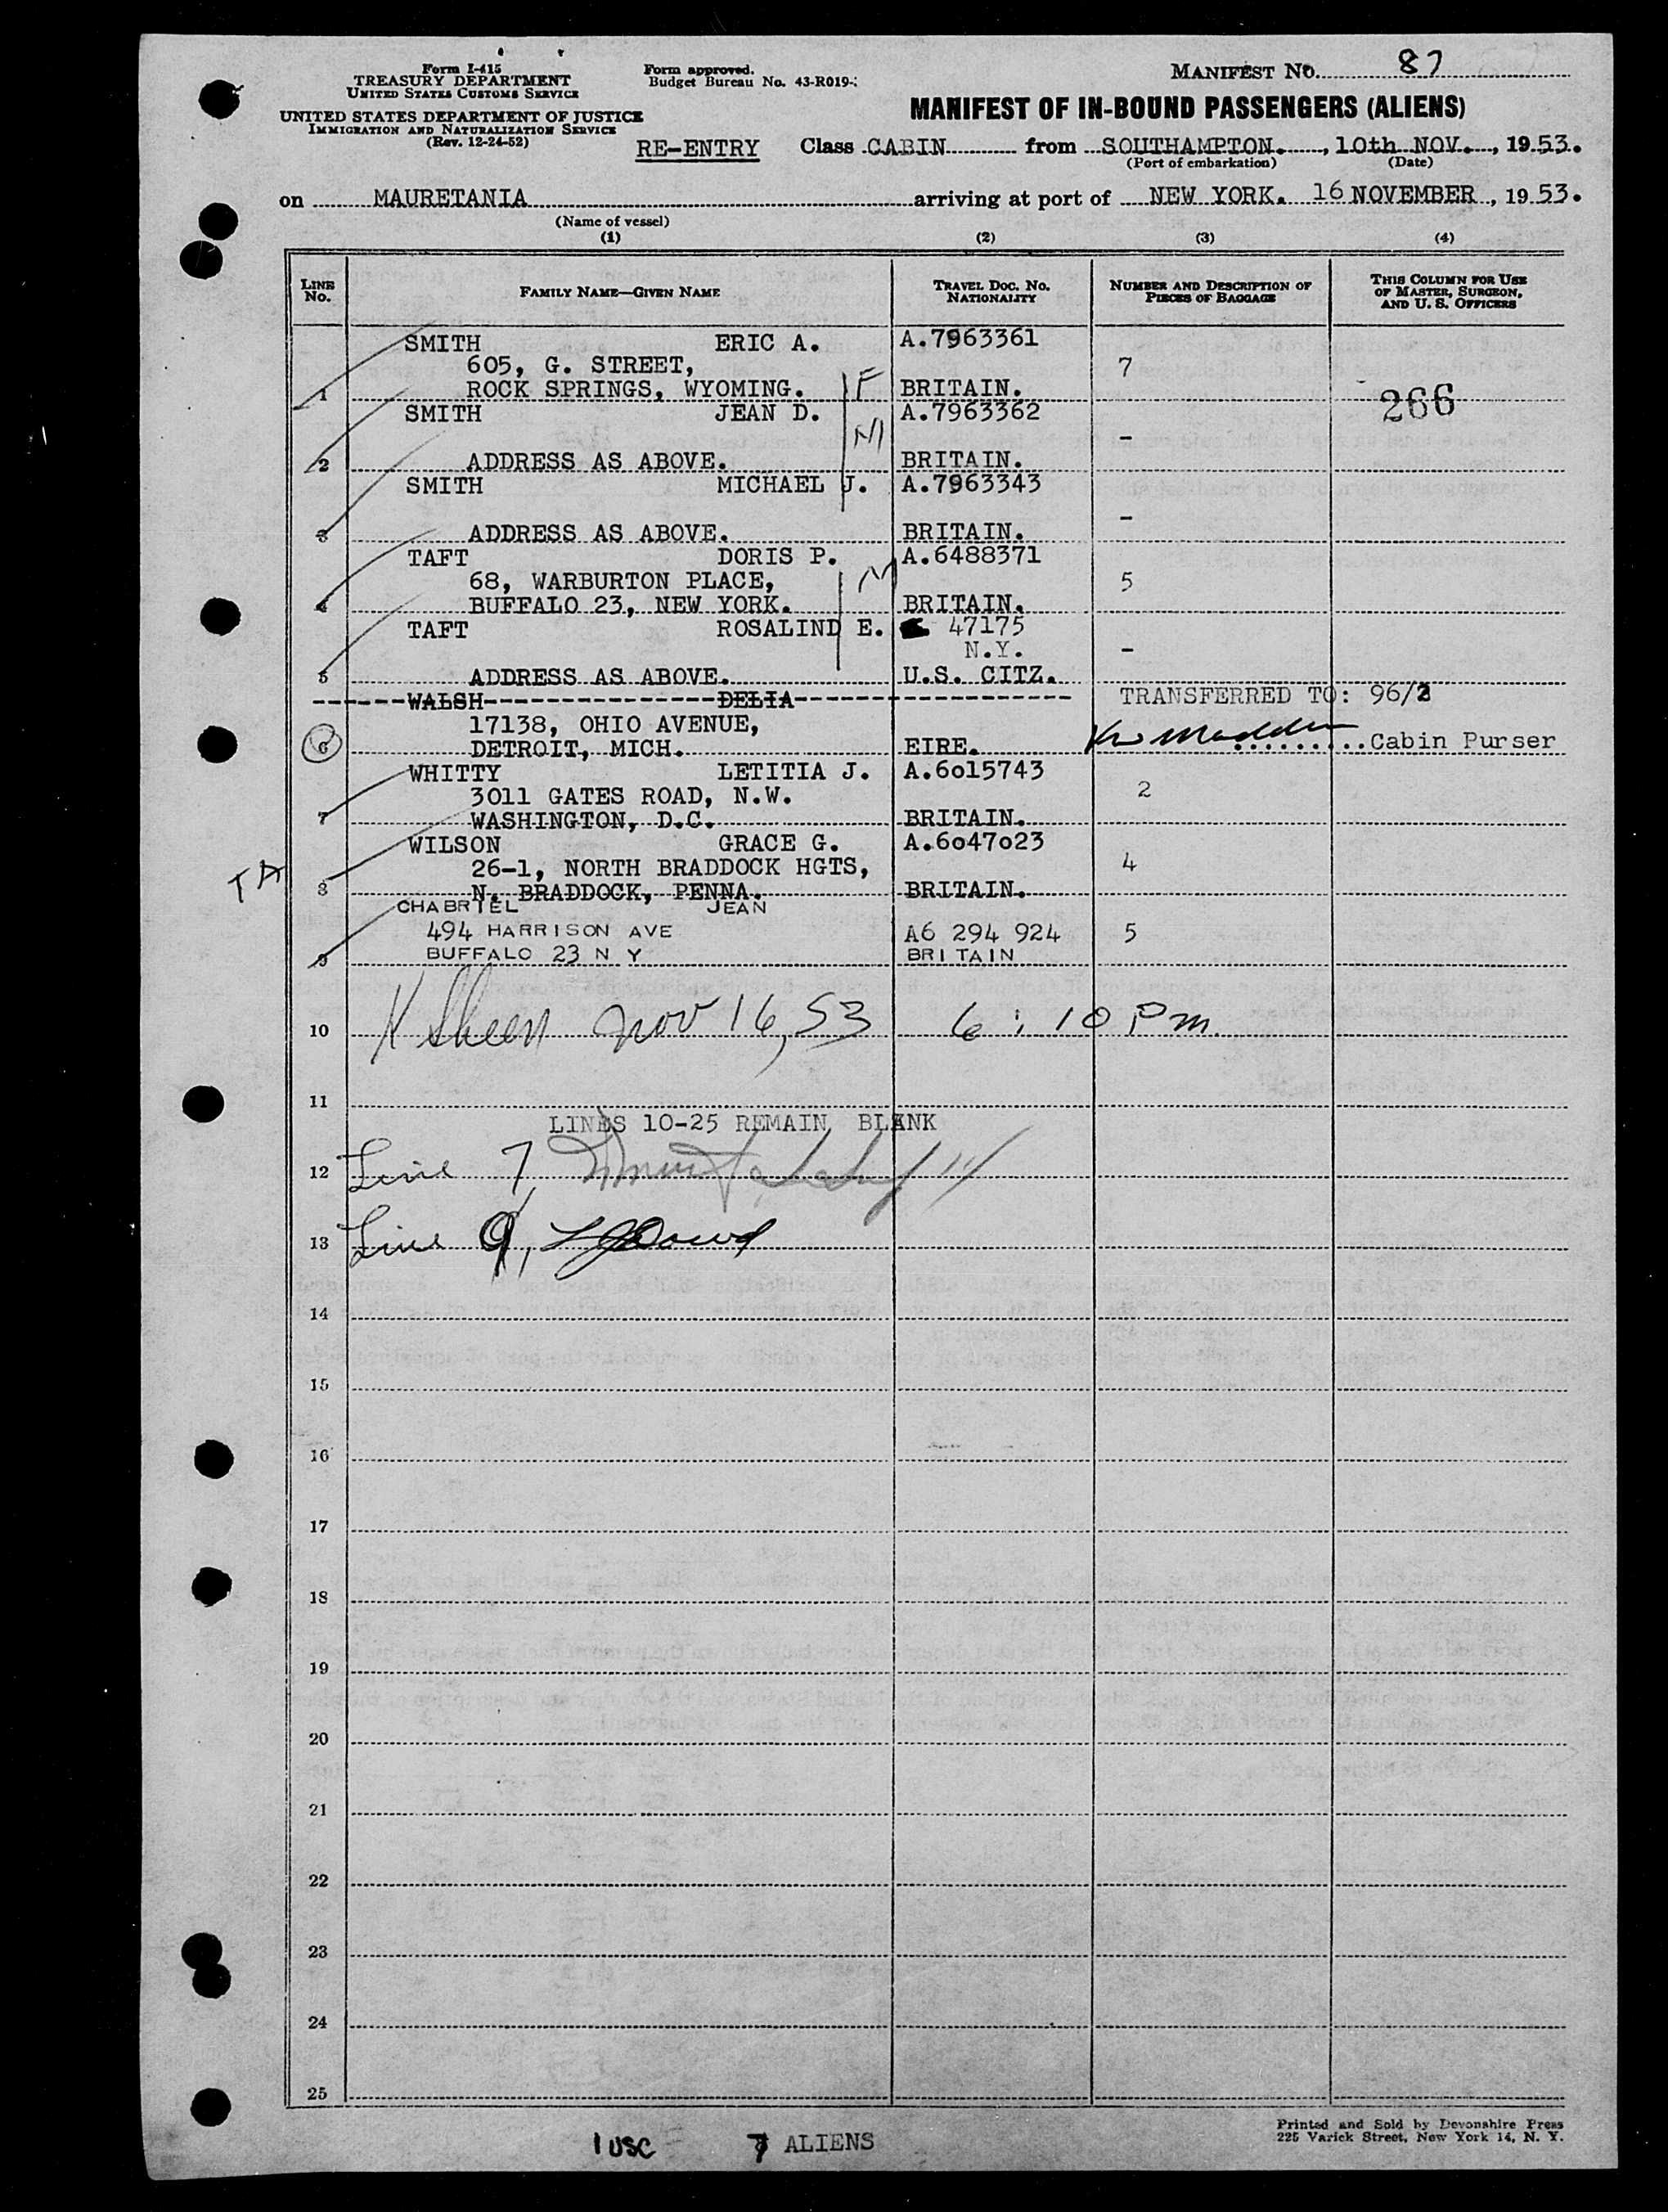 Form I-415
TREASURY DEPARTMENT
UNITED STATES CUSTOMS SERVICE
UNITED STATES DEPARTMENT OF JUSTICE
IMMIGRATION AND NATURALIZATION SERVICE
(Rev. 12-24-52)
Form approved.
Budget Bureau No. 43-R019-
MANIFEST NO. 87
MANIFEST OF IN-BOUND PASSENGERS (ALIENS)
RE-ENTRY Class CABIN from SOUTHAMPTON., 10th NOV., 1953.
(Port of embarkation) (Date)
on MAURETANIA arriving at port of NEW YORK. 16 NOVEMBER, 1953.
(Name of vessel)
(1) (2) (3) (4)
LINE No. FAMILY NAME—GIVEN NAME TRAVEL DOC. NO. NATIONALITY NUMBER AND DESCRIPTION OF PIECES OF BAGGAGE THIS COLUMN FOR USE OF MASTER, SURGEON, AND U. S. OFFICERS
SMITH ERIC A. A.7963361
605, G. STREET, 7
1 ROCK SPRINGS, WYOMING. F BRITAIN. 266
SMITH JEAN D. A.7963362
-
2 ADDRESS AS ABOVE. BRITAIN.
SMITH MICHAEL J. A.7963343
-
3 ADDRESS AS ABOVE. BRITAIN.
TAFT DORIS P. A.6488371
68, WARBURTON PLACE, 5
4 BUFFALO 23, NEW YORK. BRITAIN.
TAFT ROSALIND E. 47175
N.Y. -
5 ADDRESS AS ABOVE. U.S. CITZ.
WALSH DELIA TRANSFERRED TO: 96/2
17138, OHIO AVENUE,
6 DETROIT, MICH. EIRE. Cabin Purser
WHITTY LETITIA J. A.6o15743
3011 GATES ROAD, N.W. 2
7 WASHINGTON, D.C. BRITAIN.
WILSON GRACE G. A.6o47o23
TA 26-1, NORTH BRADDOCK HGTS, 4
8 N. BRADDOCK, PENNA. BRITAIN.
CHABRIEL JEAN
494 HARRISON AVE A6 294 924 5
9 BUFFALO 23 N Y BRITAIN
10 Nov 16, 53 6:10 Pm.
11
LINES 10-25 REMAIN BLANK
12 Line 7,
13 Line 9,
14
15
16
17
18
19
20
21
22
23
24
25
1 USC 7 ALIENS
Printed and Sold by Devonshire Press
225 Varick Street, New York 14, N. Y.